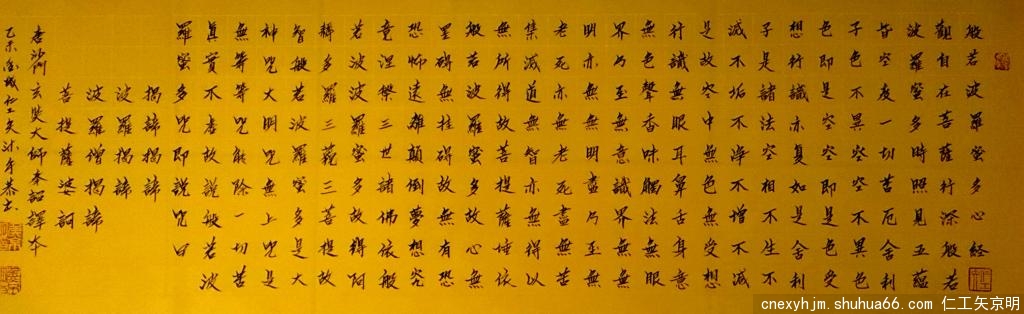 般若波羅蜜多心經
觀自在菩薩行深般若
波羅蜜多時照見五蘊
皆空度一切苦厄舍利
子色不異空空不異色
色即是空空即是色受
想行識亦復如是舍利
子是諸法空相不生不
滅不垢不淨不增不減
是故空中無色無受想
行識無眼耳鼻舌身意
無色聲香味觸法無眼
界乃至無意識界無無
明亦無無明盡乃至無
老死亦無老死盡無苦
集滅道無智亦無得以
無所得故菩提薩埵依
般若波羅蜜多故心無
罣碍無挂碍故無有恐
恐怖遠離顛倒夢想究
竟涅槃三世諸佛依般
若波波羅蜜多故得阿
耨多羅三藐三菩提故
智般若波羅蜜多是大
神咒大明咒無上咒是
無等等咒能除一切苦
真實不虛故說般若波
羅蜜多咒即說咒曰
揭諦揭諦
波羅揭諦
波羅僧揭諦
菩提薩婆訶
唐沙門玄奘大師奉詔譯本
乙未城仁工矢沐手恭書
cnexyhjm.shuhua66.com 仁工矢京明